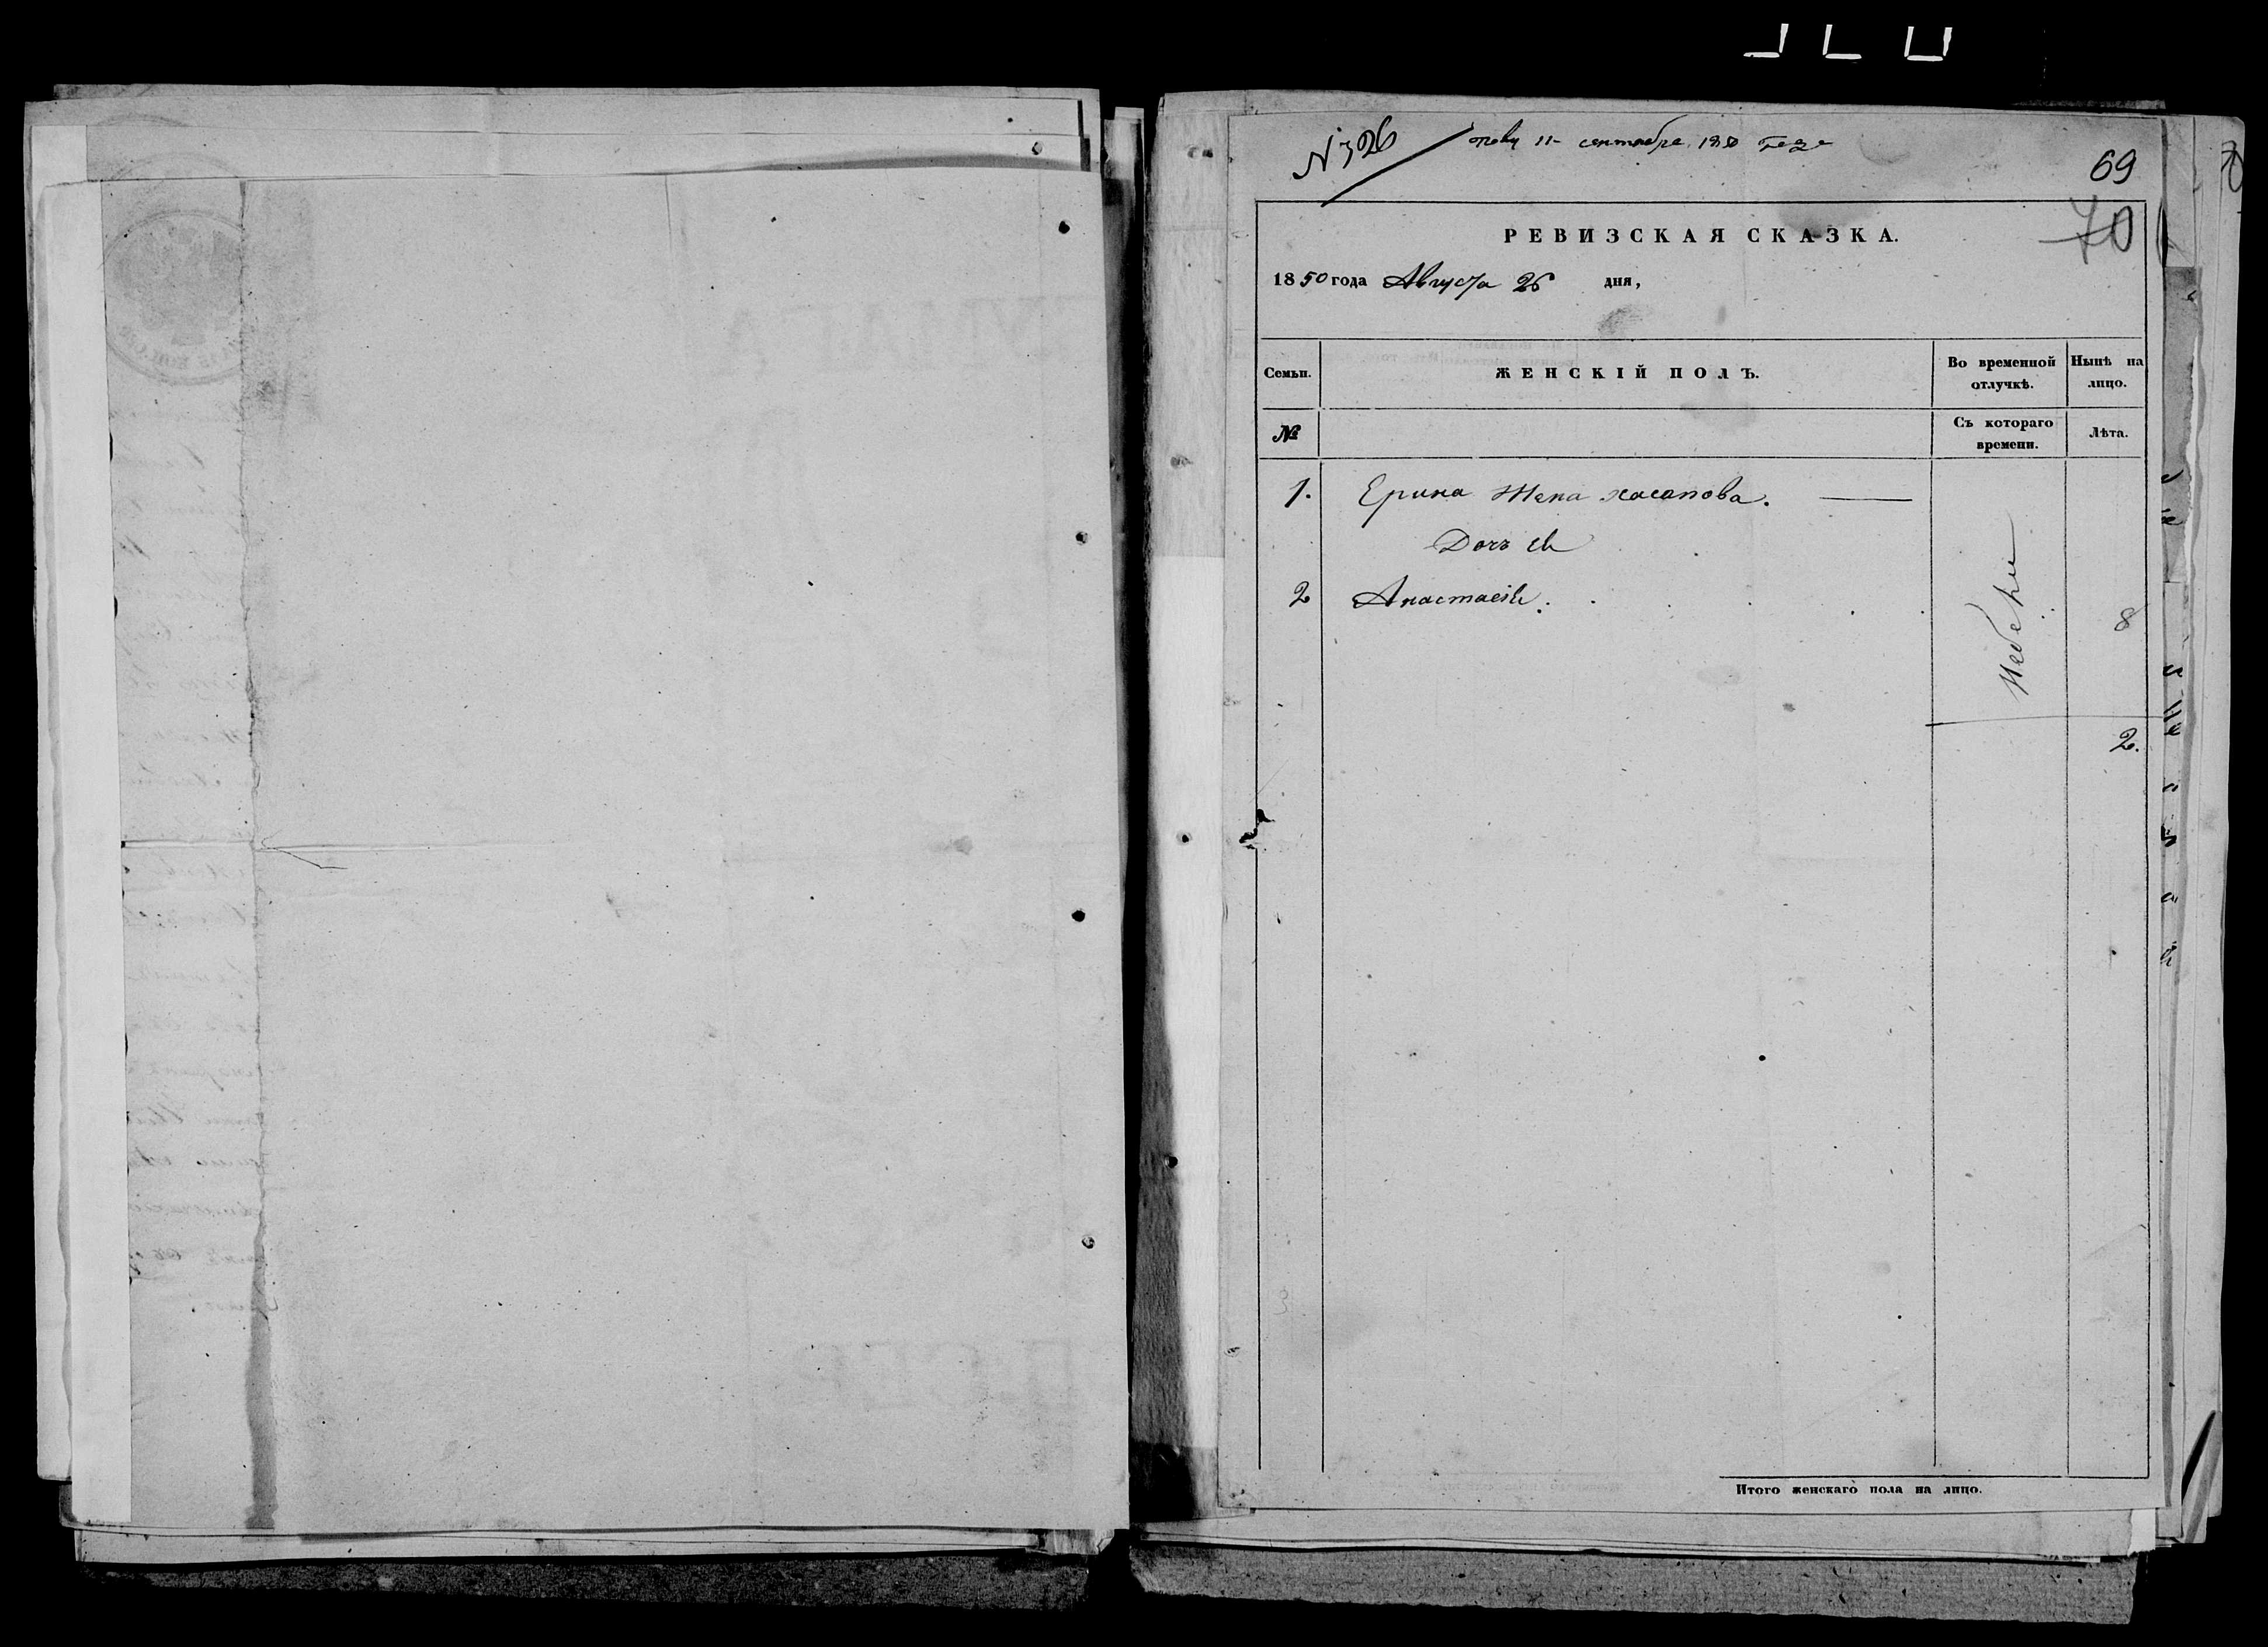 N 326
11 сентября 1850 года
69
70
РЕВИЗСКАЯ СКАЗКА.
1850 года Августа 26 дня,
Семьи.
ЖЕНСКІЙ ПОЛЪ.
Во временной отлучкѣ.
Нынѣ на лицо.
№
Съ котораго времени.
Лѣта.
1. Ерина жена хасапова.
Дочь ея
2 Анастасія.
8
2.
Итого женскаго пола на лицо.